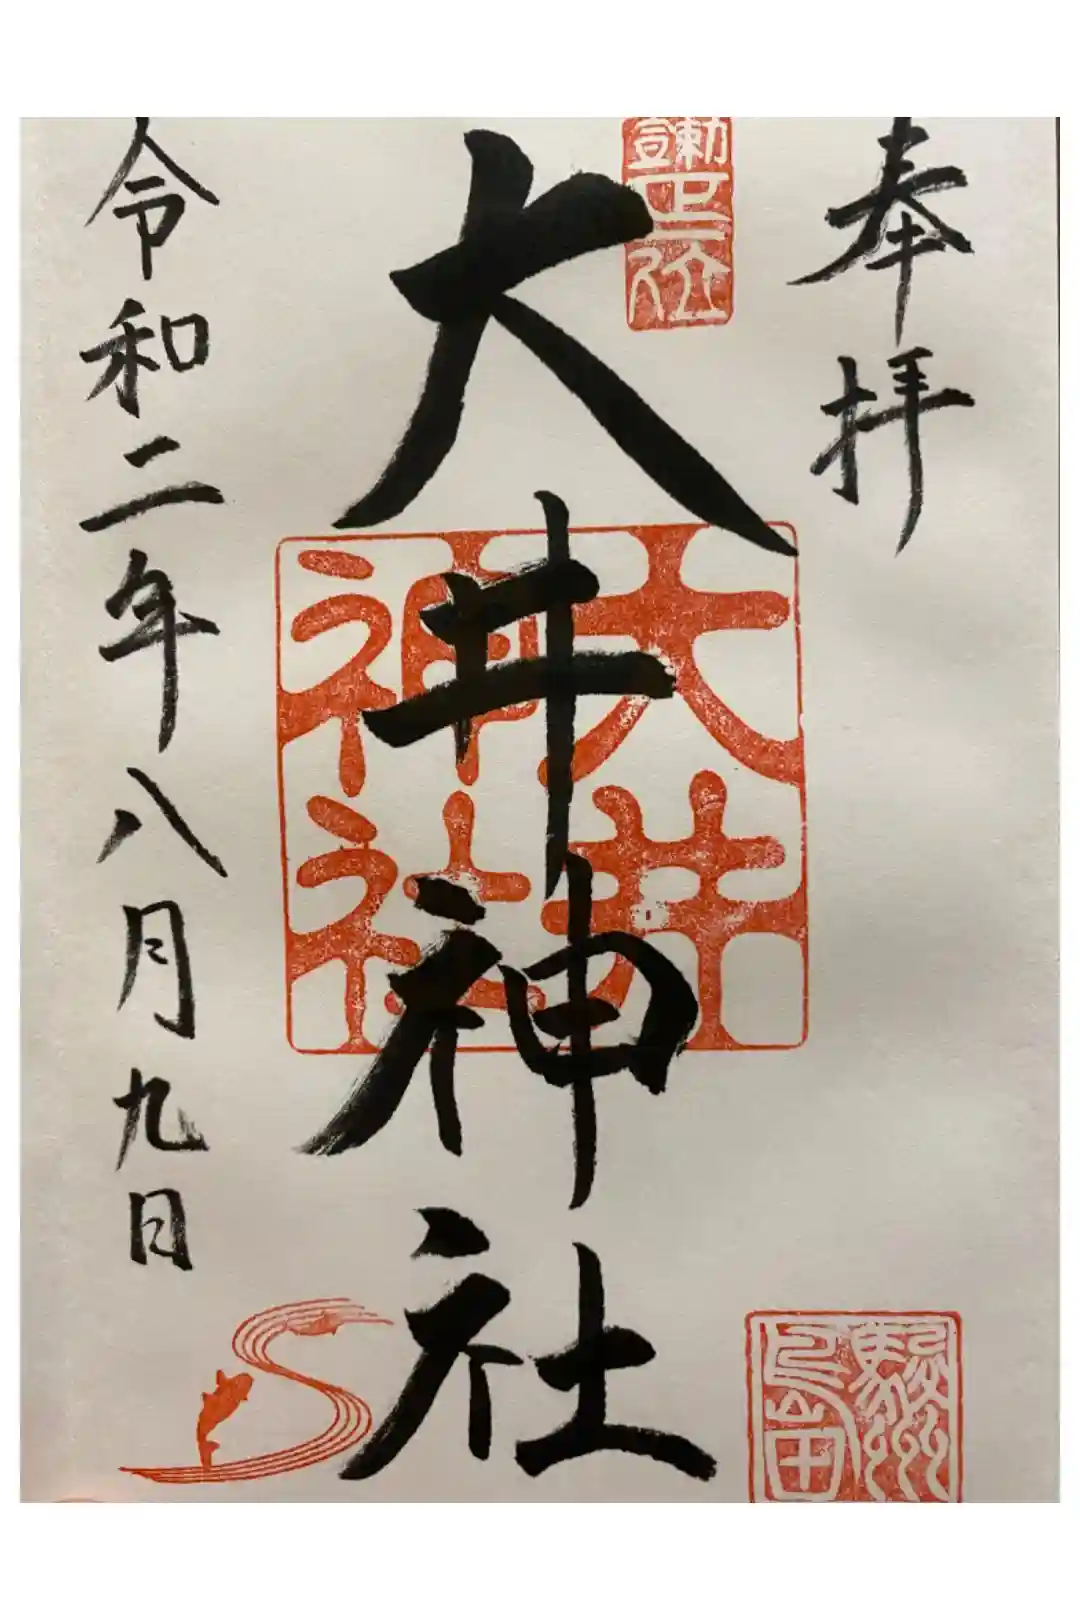 奉拝
勅宣
正一位
大井神社
大井
神社
駿州
島田
令和二年八月九日